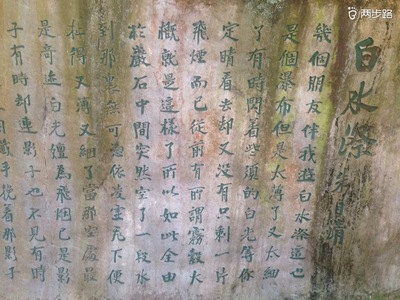 两步路
白水漈 朱自清
幾個朋友伴我遊白水漈這也
是個瀑布但是太薄了又太細
了有時閃着些須的白光等你
定睛看去却又沒有只剩一片
飛煙而已從前有所謂霧縠大
概就是這樣了所以如此全由
於巖石中間突然空了一段水
到那裏無可憑依凌虛飛下便
扯得又薄又細了當那空處最
是奇迹白光嬗為飛烟已是影
子有時却連影子也不見有時
用纖手挽着那影子